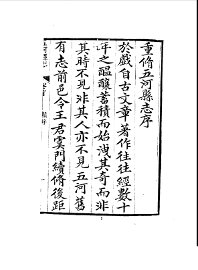 重脩五河縣志序
於戲自古文章著作往往經數十
年之醞釀蓄積而始洩其奇而非
其時不見非其人亦不見五河舊
有志前邑令王君寞門續脩後距